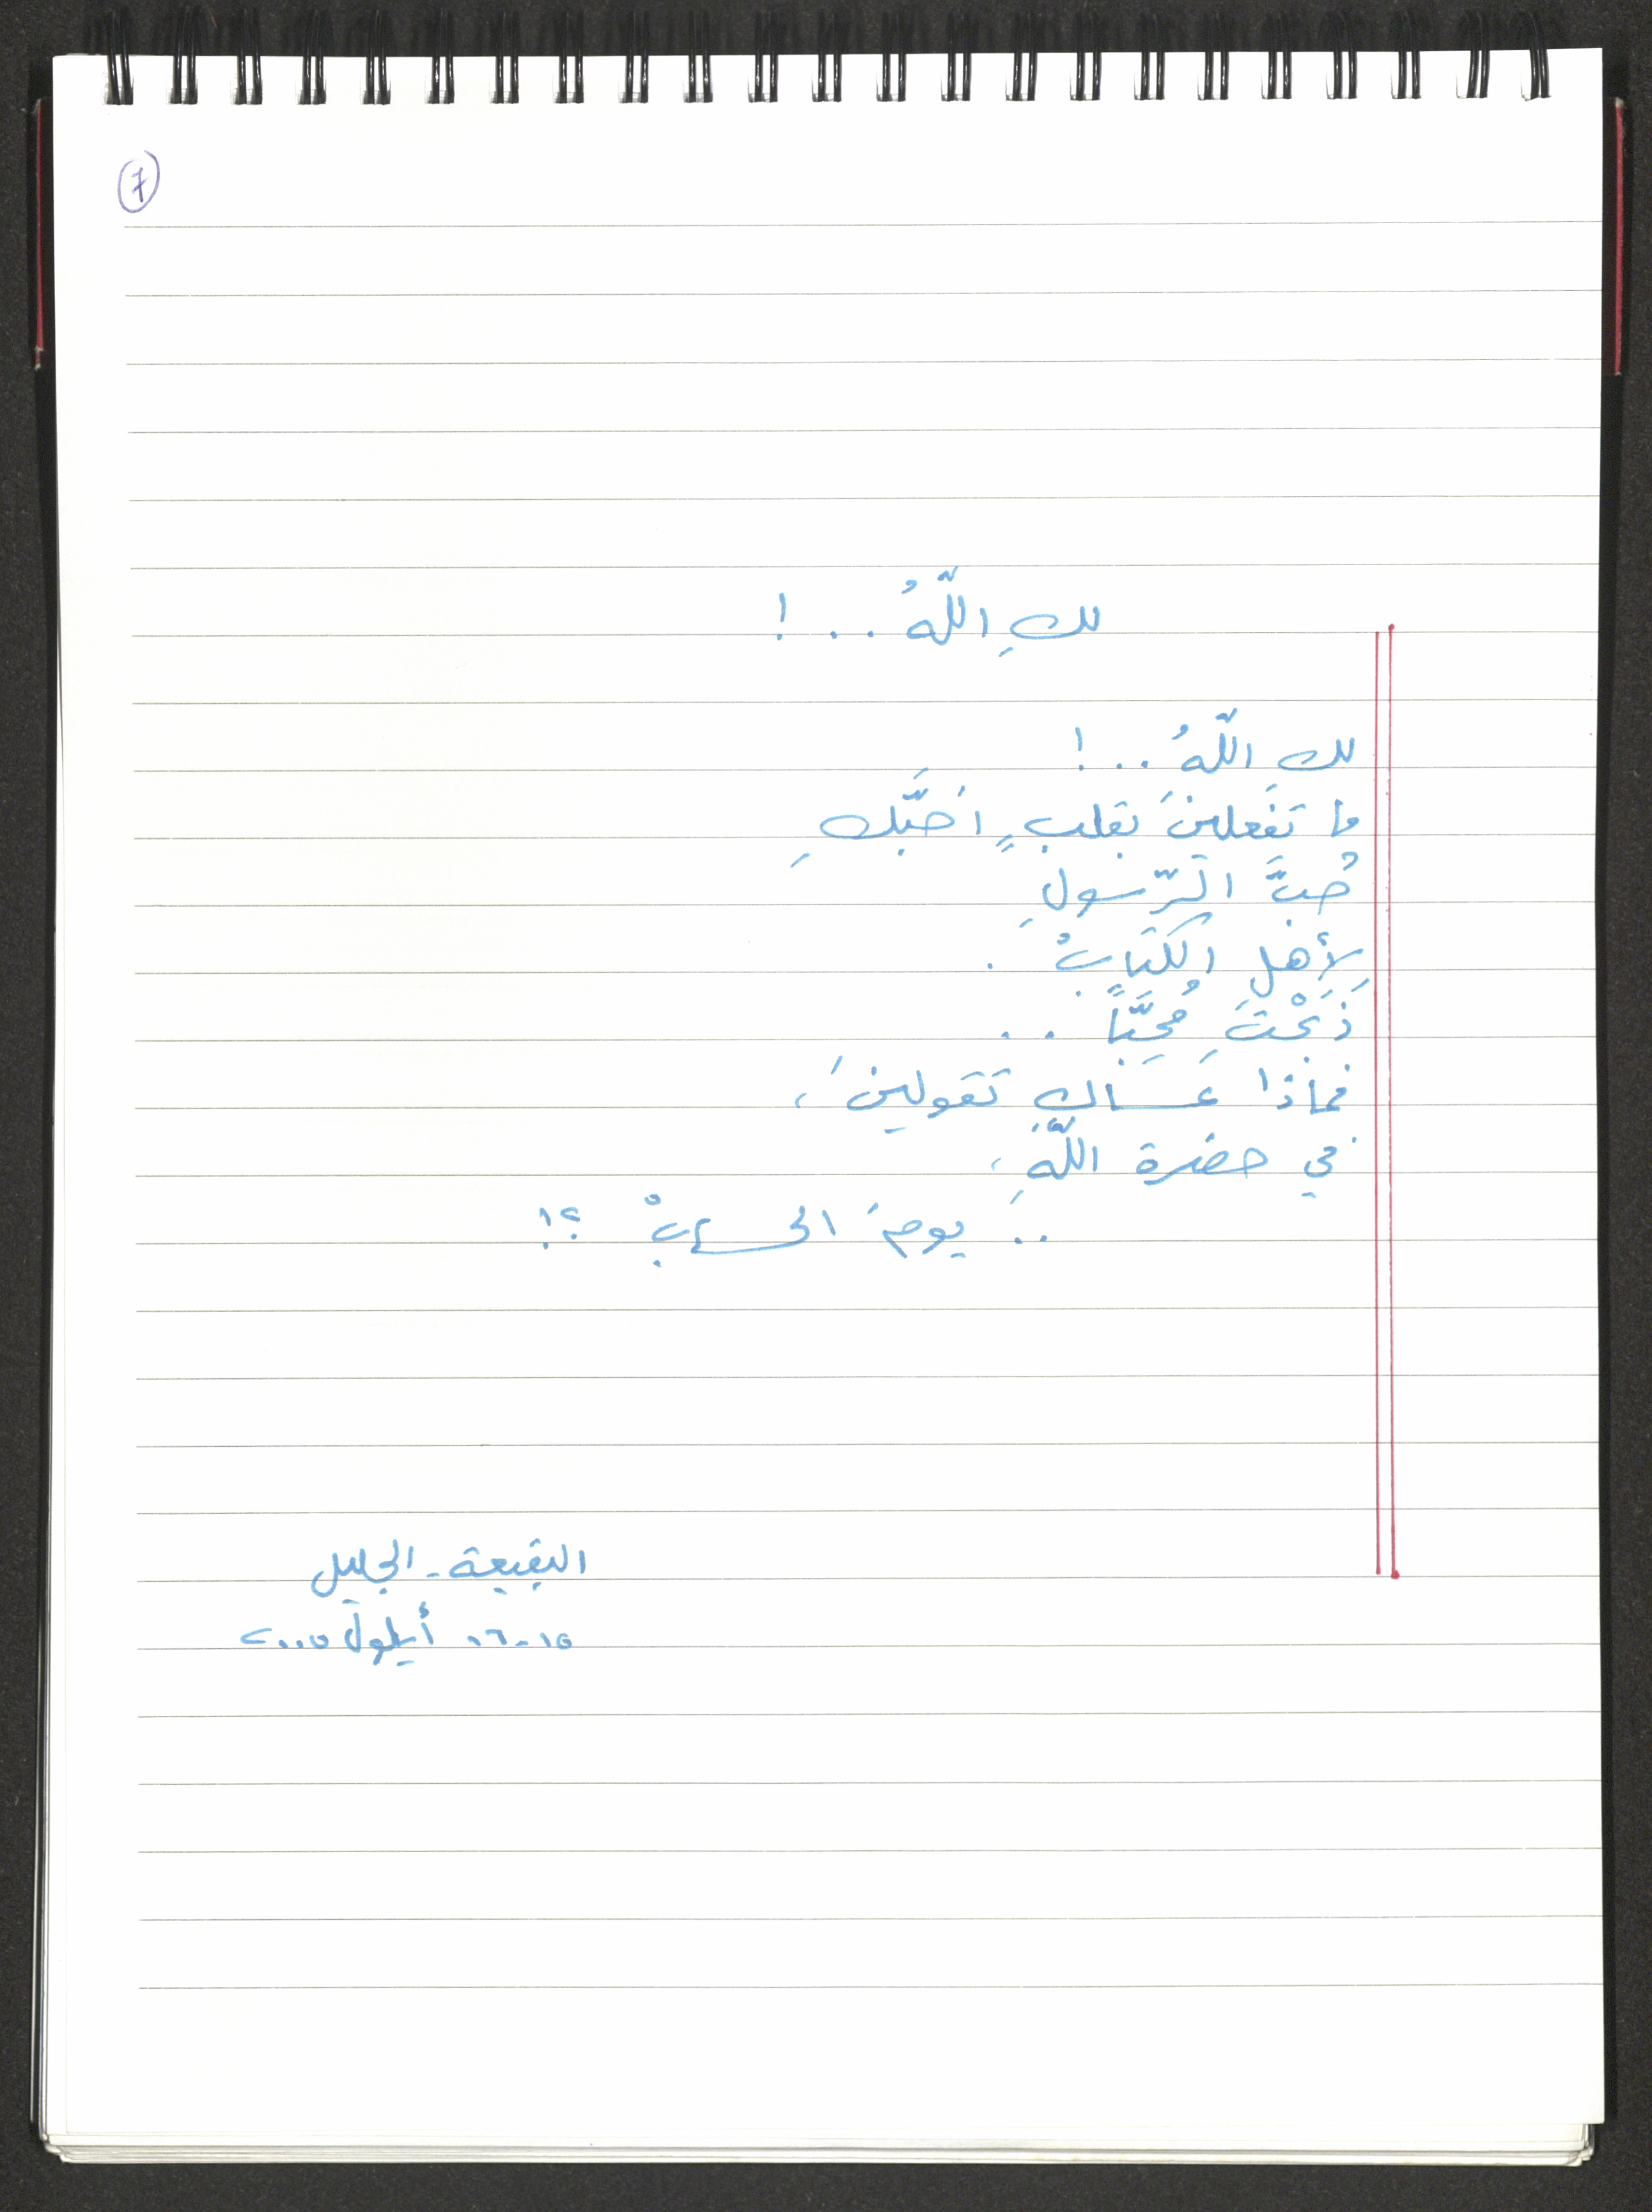 7
لكِ اللّهُ . . !
لكِ اللّهُ . . !
ما تفعلينَ بقلبٍ أحَبَّكِ
حُبَّ الرَّسولِ
لِأهلِ الكِتَابْ .
ذَبَحْتِ مُحِبّاً . .
فماذا عَساكِ تَقولينَ ،
في حضرة اللّهِ ،
. . يومَ الحسابْ ؟!
البقيعة - الجليل
١٥-٠٦ أيلول ٢٠٠٥